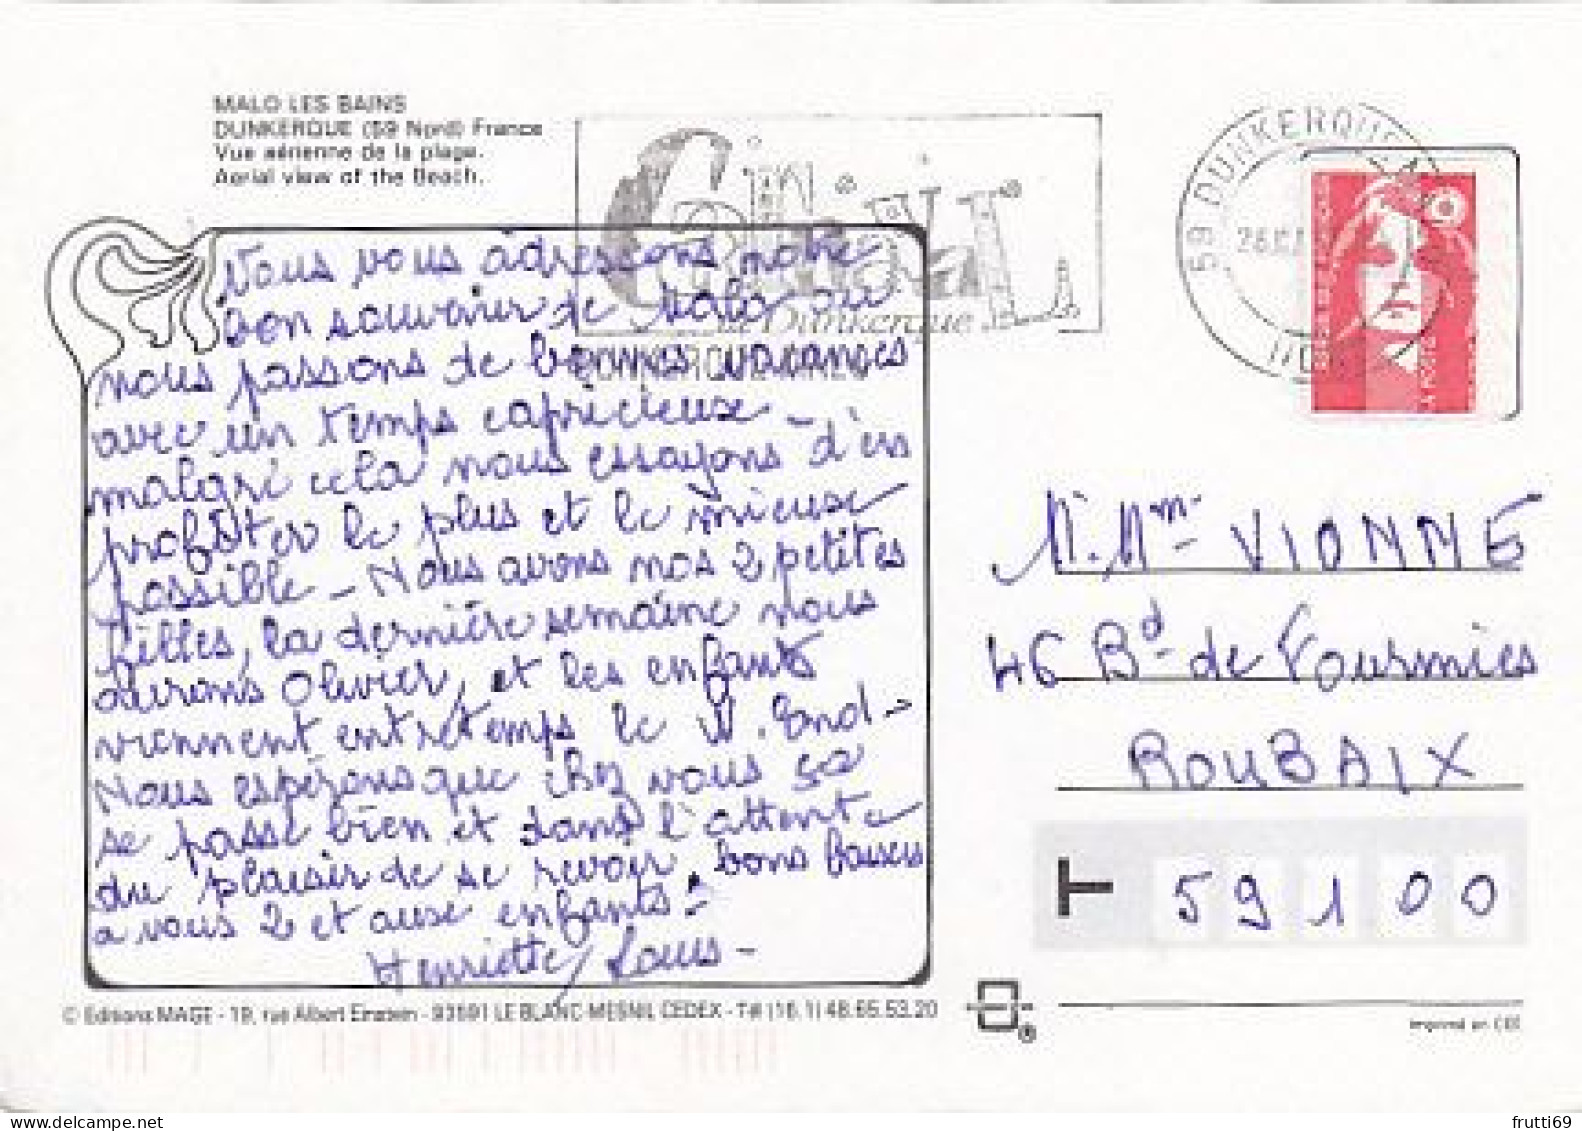 MALO LES BAINS
DUNKERQUE (59 Nord) France
Vue aérienne de la plage.
Aerial view of the Beach.
Carnaval
de Dunkerque
59 DUNKERQUE
Nous vous adressons notre
bon souvenir de Malo ou
nous passons de bonnes vacances
avec un temps capricieux -
malgré cela nous essayons d'en
profiter le plus et le mieux
possible - Nous avons nos 2 petites
filles, la dernière semaine nous
aurons Olivier, et les enfants
viennent entretemps le W. End -
Nous espérons que chez vous ça
se passe bien et dans l'attente
du plaisir de se revoir, bons baisers
a vous 2 et aux enfants.
Henriette, Louis -
M. Mme VIONNE
46 Bd de Fourmies
ROUBAIX
59100
© Editions MAGE - 19, rue Albert Einstein - 93591 LE BLANC-MESNIL CEDEX - Tél (16.1) 48.65.53.20
Imprimé en CEE
frutti69